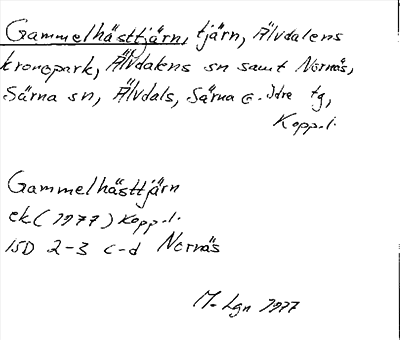 Gammelhästtjärn, tjärn, Älvdalens
kronopark, Älvdalens sn samt Nornäs,
Särna sn, Älvdals, Särna o. Idre tg,
Kopp.l.
Gammelhästtjärn
ek (1977) Kopp.l.
15D 2-3 c-d Nornäs
M. Lgn 1977